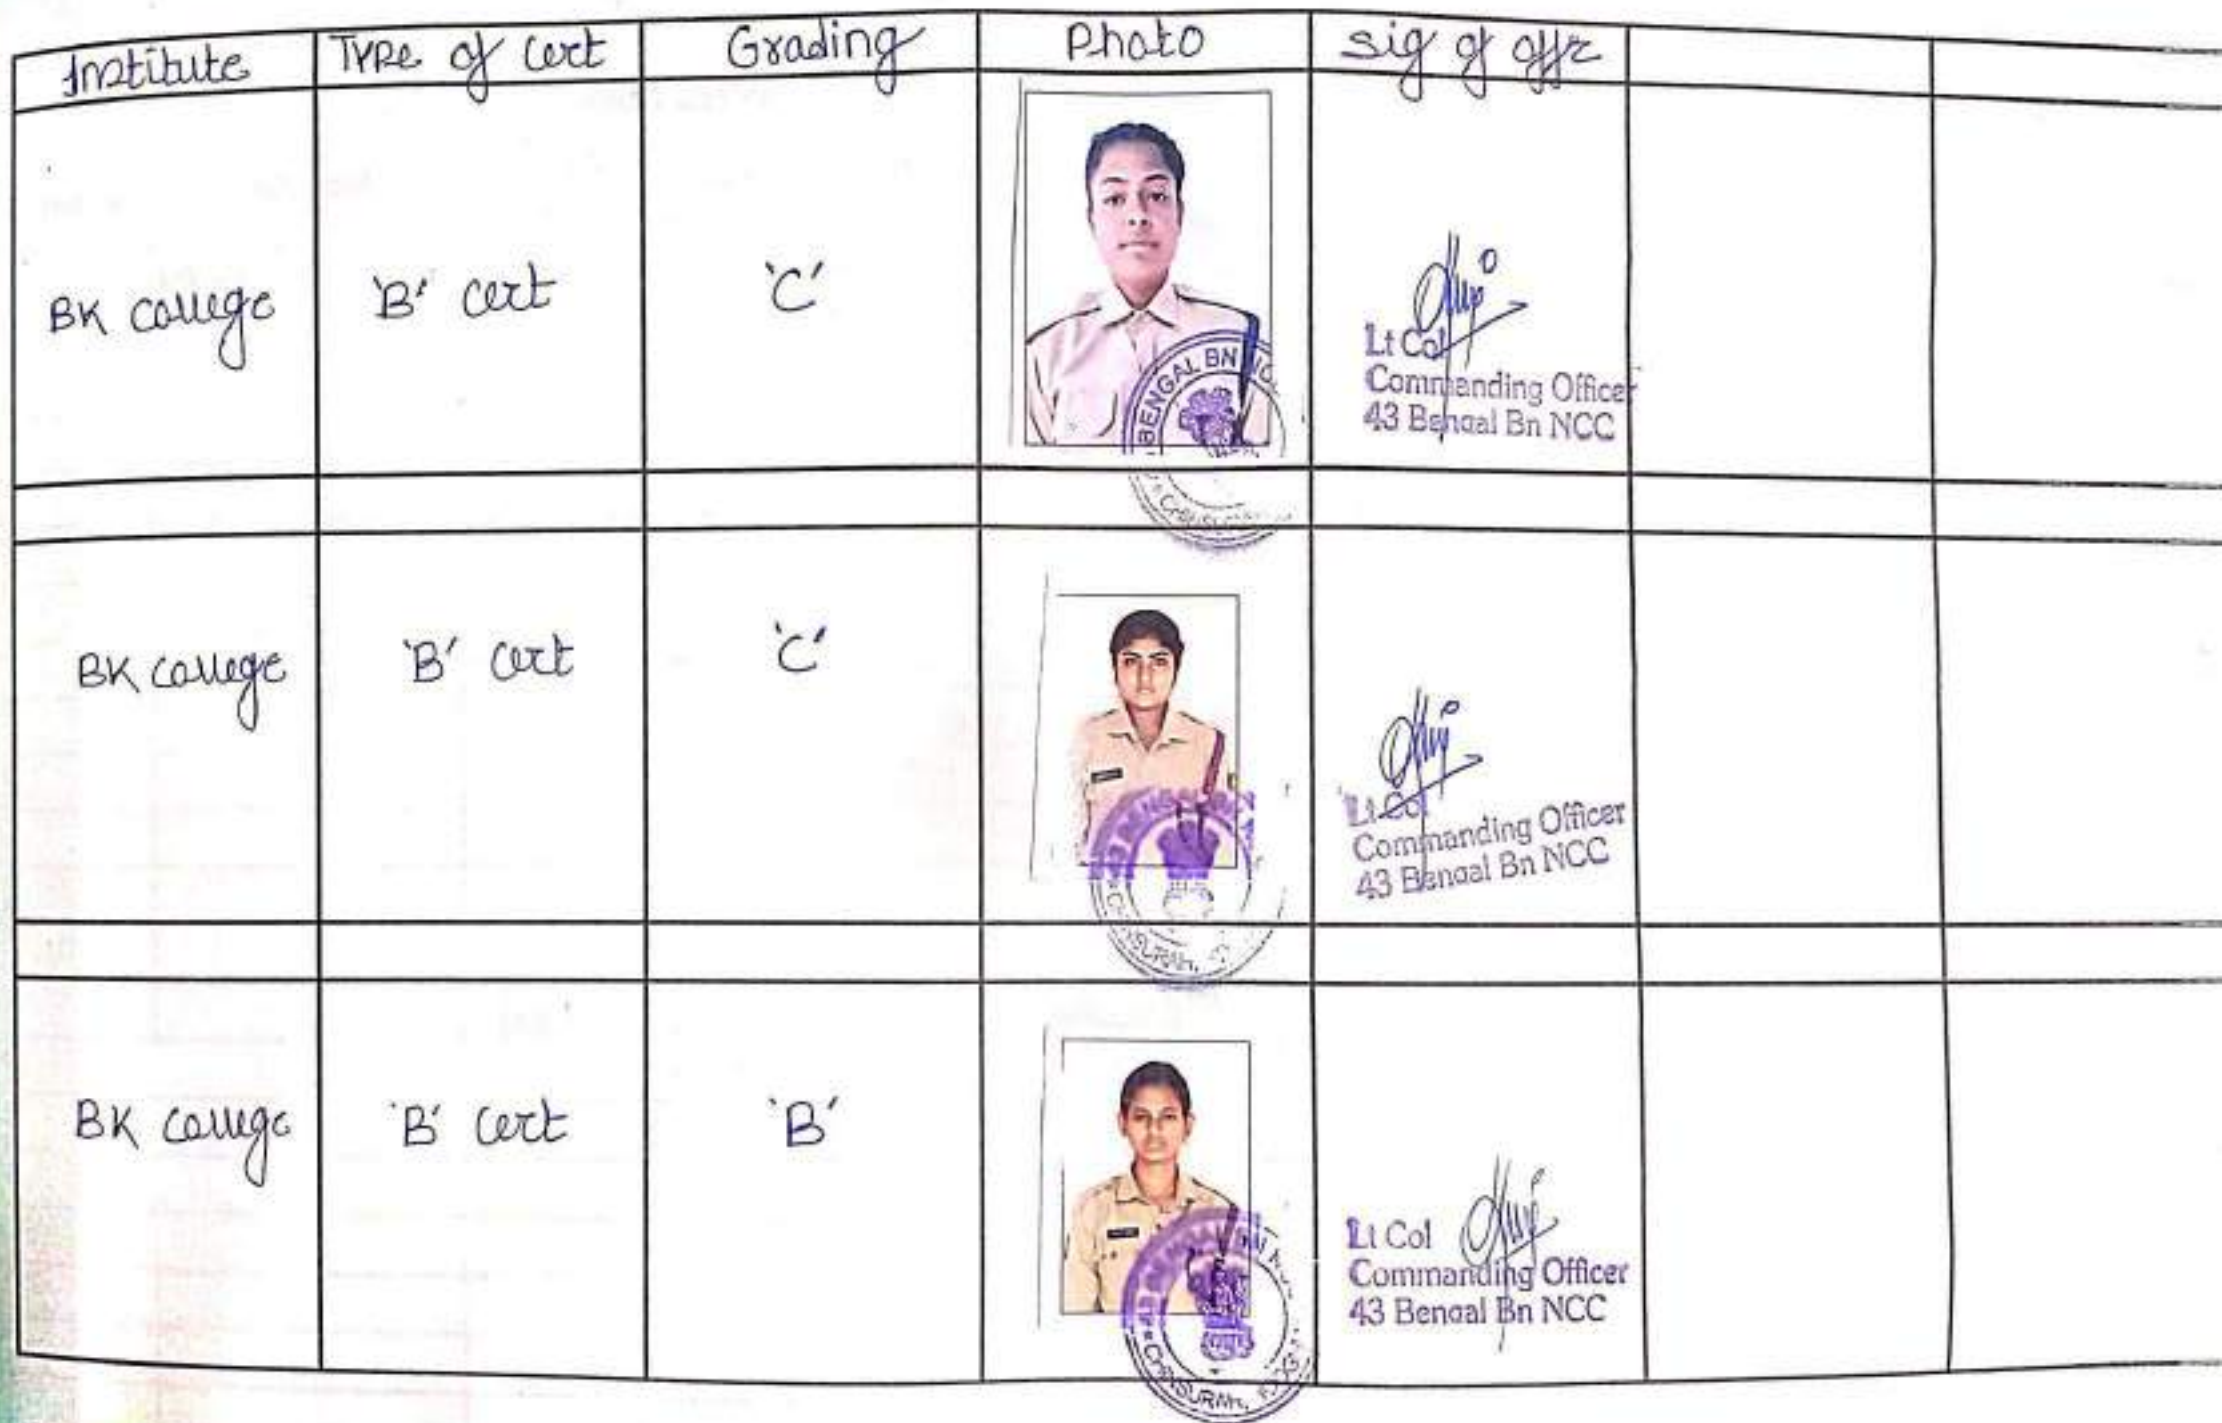 Institute Type of Cert Grading Photo Sig of offr
BK College 'B' Cert 'C'
BENGAL BN
Lt Col
Commanding Officer
43 Bengal Bn NCC
BK College 'B' Cert 'C'
Lt Col
Commanding Officer
43 Bengal Bn NCC
BK College 'B' Cert 'B'
43 BENGAL BN
CHINSURAH,
Lt Col
Commanding Officer
43 Bengal Bn NCC